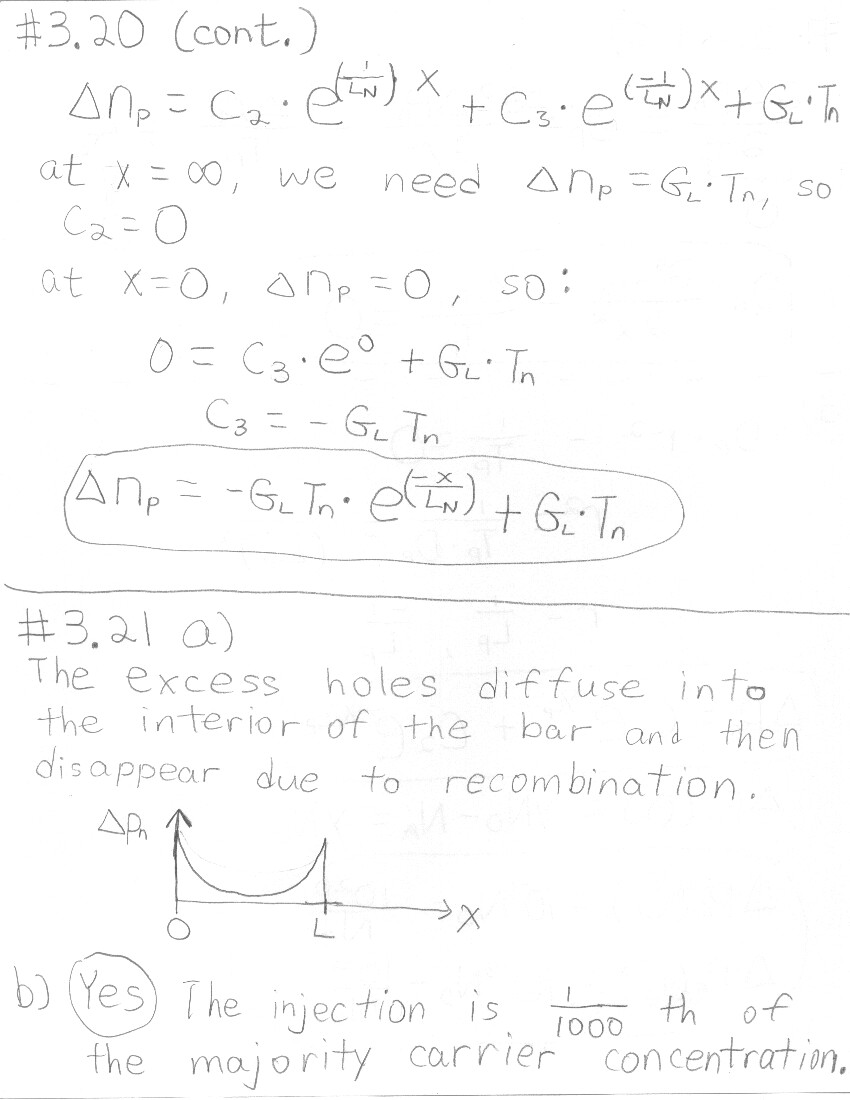 #3.20 (cont.)
Δn_p = C_2 · e^(1/L_N) x + C_3 · e^(-1/L_N) x + G_L · T_n
at x = ∞, we need Δn_p = G_L · T_n, so
C_2 = 0
at x=0, Δn_p = 0, so:
0 = C_3 · e^0 + G_L · T_n
C_3 = - G_L T_n
Δn_p = -G_L T_n · e^(-x/L_N) + G_L · T_n
#3.21 a)
The excess holes diffuse into
the interior of the bar and then
disappear due to recombination.
Δp_n
x
0 L
b) Yes The injection is 1/1000 th of
the majority carrier concentration.